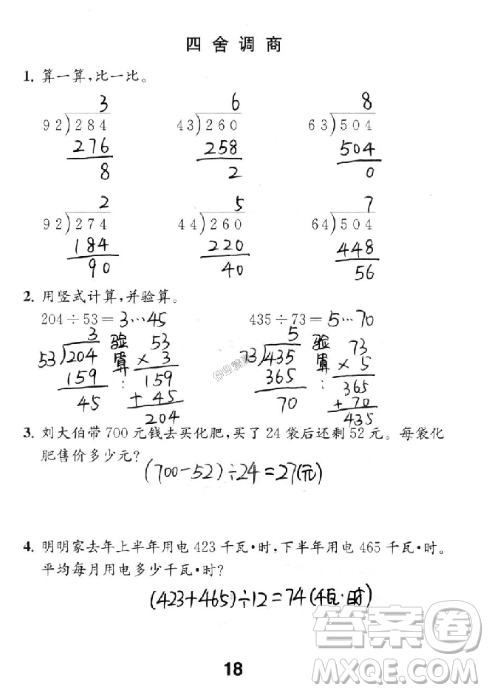 四 舍 调 商
1. 算一算,比一比。
3 6 8
92)284 43)260 63)504
276 258 504
8 2 0
2 5 7
92)274 44)260 64)504
184 220 448
90 40 56
2. 用竖式计算,并验算。
204÷53=3…45 435÷73=5…70
3 验算: 53 5 验算: 73
53)204 × 3 73)435 × 5
159 159 365 365
45 + 45 70 + 70
204 435
3. 刘大伯带 700 元钱去买化肥,买了 24 袋后还剩 52 元。每袋化
肥售价多少元?
(700-52)÷24=27(元)
4. 明明家去年上半年用电 423 千瓦·时,下半年用电 465 千瓦·时。
平均每月用电多少千瓦·时?
(423+465)÷12=74(千瓦·时)
18
答案圈
MXQE.COM